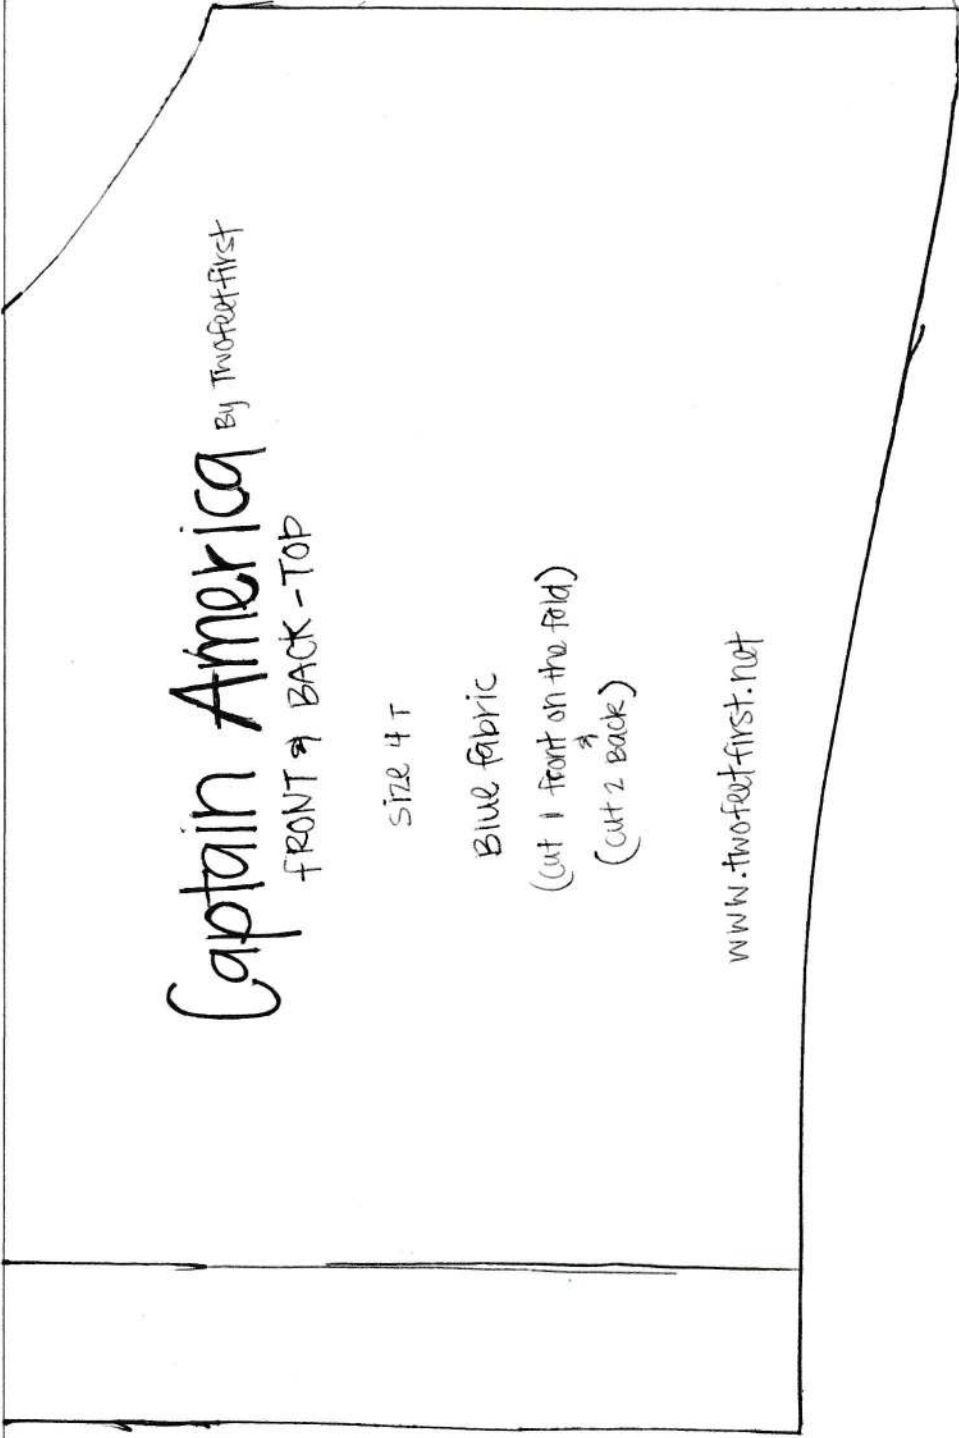 Captain America By Twofeetfirst
FRONT & BACK - TOP
Size 4T
Blue fabric
(cut 1 front on the fold)
&
(cut 2 Back)
www.twofeetfirst.net